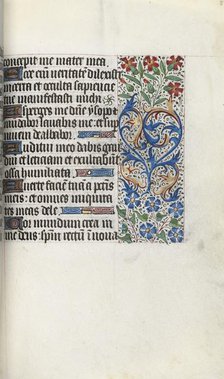 concepit me mater mea
Ecce eni veritate dilexisti
incerta et occulta sapiencie
tue manifestasti michi
Asperges me dne ysopo et
mundabor lavabis me et sup
nivem dealbabor
Auditui meo dabis gau
diu et leticiam et exultabut
ossa humiliata
Averte facie tua a pctis
meis et omnes iniquita
tes meas dele
Cor mundum crea in
me deus spm rectu i nova